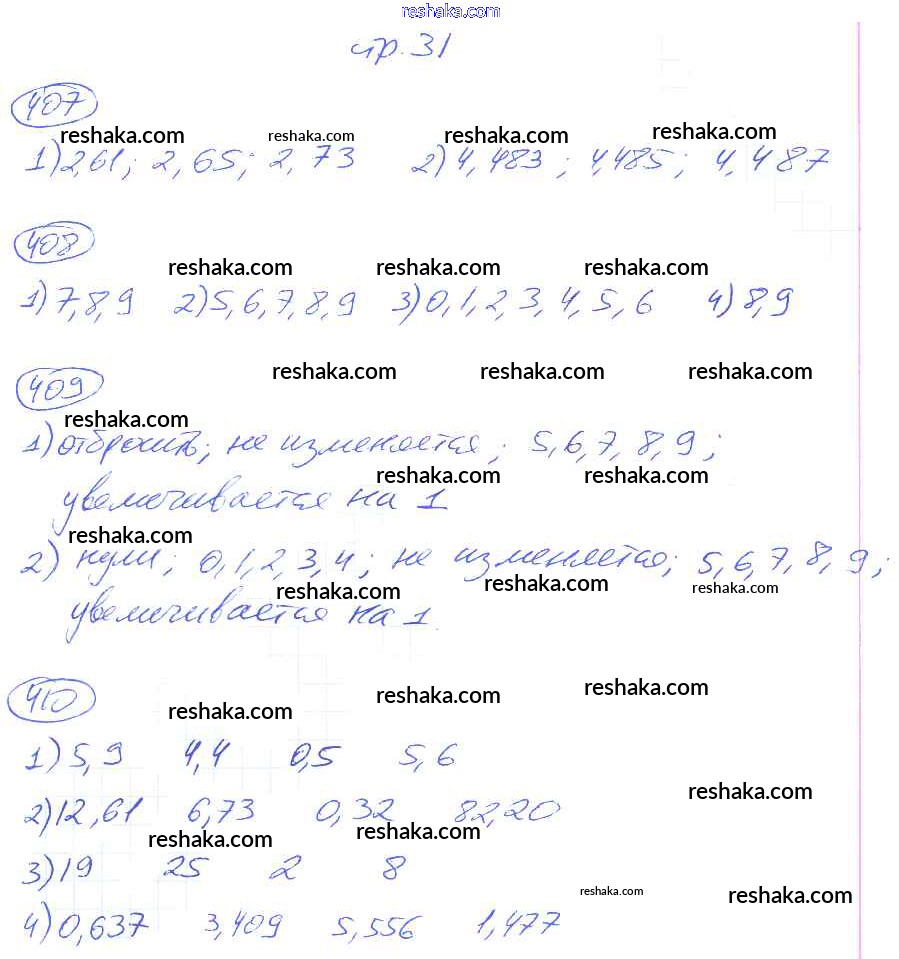 reshaka.com
стр. 31
407
reshaka.com reshaka.com reshaka.com reshaka.com
1) 2,61; 2,65; 2,73 2) 4,483; 4,485; 4,487
408
reshaka.com reshaka.com reshaka.com
1) 7,8,9 2) 5,6,7,8,9 3) 0,1,2,3,4,5,6 4) 8,9
409
reshaka.com reshaka.com reshaka.com
reshaka.com
1) отбросить; не изменяется; 5,6,7,8,9;
reshaka.com reshaka.com
увеличивается на 1
reshaka.com
2) нули; 0,1,2,3,4; не изменяется; 5,6,7,8,9;
reshaka.com reshaka.com reshaka.com
увеличивается на 1
410
reshaka.com reshaka.com reshaka.com
1) 5,9 4,4 0,5 5,6
reshaka.com
2) 12,61 6,73 0,32 82,20
reshaka.com reshaka.com
3) 19 25 2 8
reshaka.com reshaka.com
4) 0,637 3,409 5,556 1,477